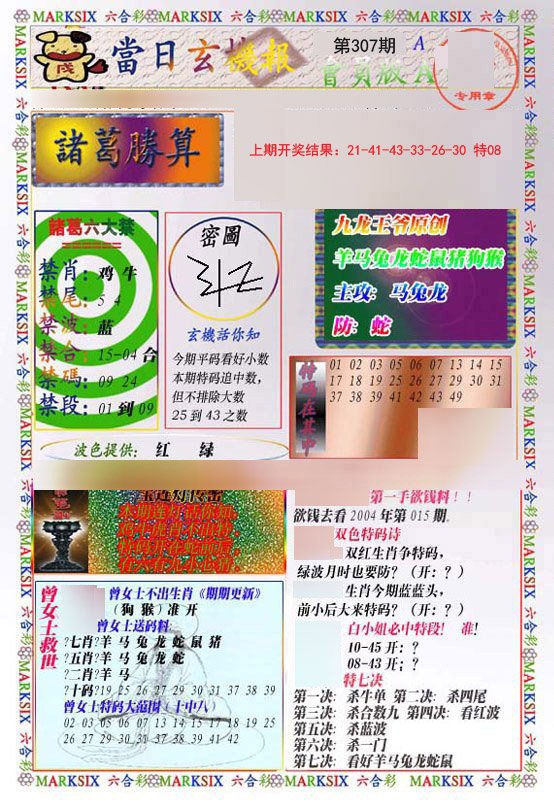 MARKSIX 六合彩 MARKSIX 六合彩 MARKSIX 六合彩 MARKSIX 六合彩 MARKSIX
當日玄機報
第307期
A
會員版A
专用章
諸葛勝算
上期开奖结果：21-41-43-33-26-30 特08
諸葛六大禁
禁肖：鸡 牛
禁尾：5 4
禁波：蓝
禁合：15-04 合
禁碼：09 24
禁段：01 到 09
密圖
玄機話你知
今期平码看好小数
本期特码追中数，
但不排除大数
25 到 43 之数
九龙王爷原创
羊马兔龙蛇鼠猪狗猴
主攻：马兔龙
防：蛇
特码在其中
01 02 03 05 06 07 13 14 15
17 18 19 25 26 27 29 30 31
37 38 39 41 42 43 49
波色提供： 红 绿
第一手欲钱料！！
欲钱去看 2004 年第 015 期
双色特码诗
双红生肖争特码，
绿波月时也要防？（开：？）
生肖今期蓝蓝头，
前小后大来特码？（开：？）
白小姐必中特段！ 准!
10-45 开：？
08-43 开；？
特七决
第一决：杀牛单 第二决：杀四尾
第三决：杀合数九 第四决：看红波
第五决：杀蓝波
第六决：杀一门
第七决：看好羊马兔龙蛇鼠
曾女士救世
曾女士不出生肖《期期更新》
（狗 猴）准 开
曾女士送码料:
?七肖?羊 马 兔 龙 蛇 鼠 猪
?五肖?羊 马 兔 龙 蛇
?二肖?羊 马
?十码?19 25 26 27 29 30 31 37 38 39
曾女士特码大范围（十中八）
02 03 05 06 07 13 14 15 17 18 19 25
26 27 29 30 31 37 38 39 41 42
MARKSIX 六合彩 MARKSIX 六合彩 MARKSIX 六合彩 MARKSIX 六合彩 MARKSIX